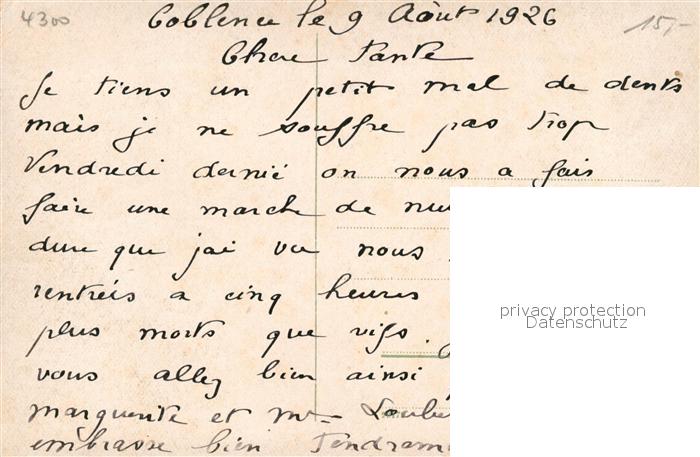 4300
15,-
Coblence le 9 Août 1926
Chere Tante
Je tiens un petit mal de dents
mais je ne souffre pas trop
Vendredi dernié on nous a fais
faire une marche de nui
dure que jai vu nous
rentréis a cinq heures
plus morts que vifs.
vous allez bien ainsi
marguerite et Mr Loubé
embrasse bien Tendreme
privacy protection
Datenschutz